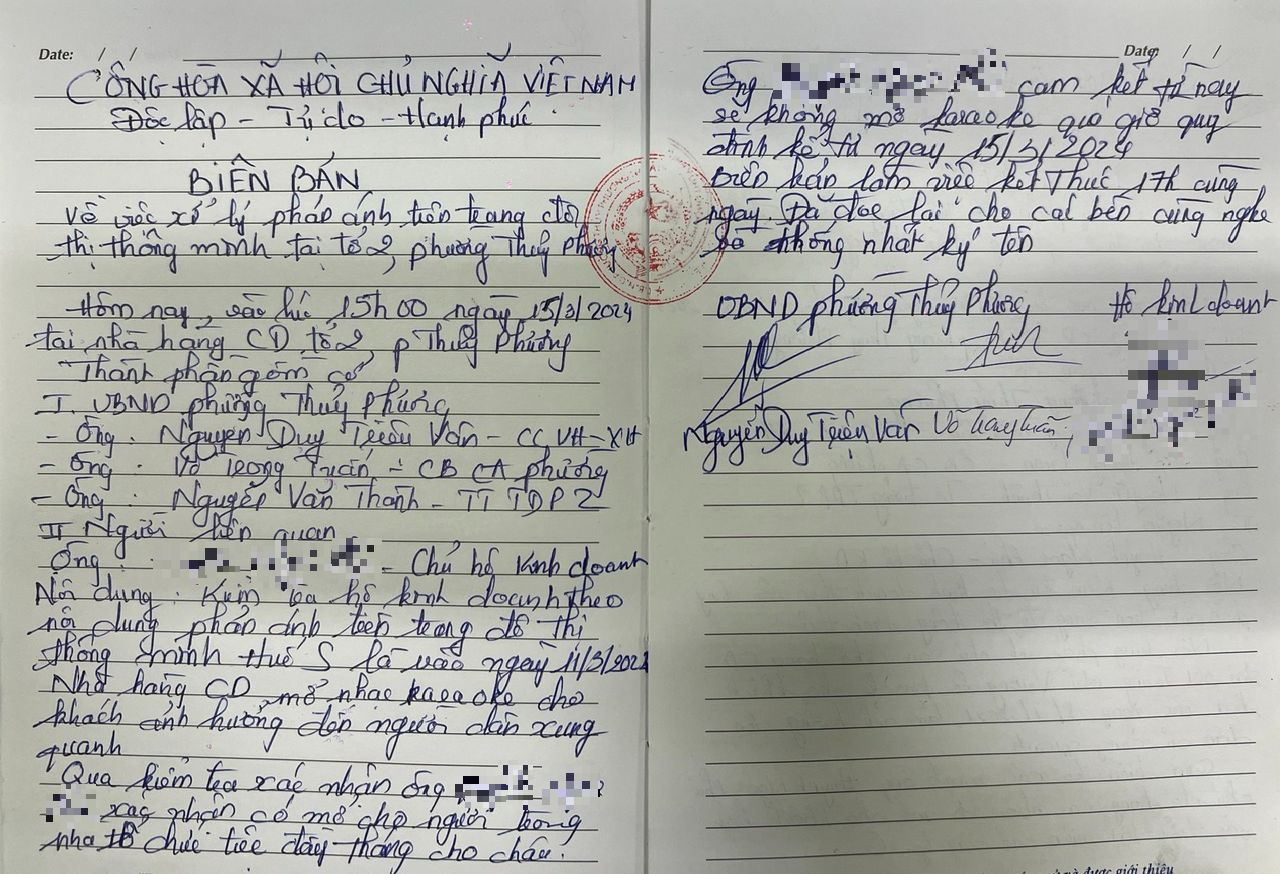 Date: / /
CỘNG HÒA XÃ HỘI CHỦ NGHĨA VIỆT NAM
Độc lập - Tự do - Hạnh phúc
BIÊN BẢN
Về việc xử lý phản ánh trên trang đô
thị thông minh tại tổ 2, phường Thủy Phương
Hôm nay, vào lúc 15h00 ngày 15/3/2024
tại nhà hàng CD tổ 2, p Thủy Phương
Thành phần gồm có
I. UBND phường Thủy Phương
- Ông: Nguyễn Duy Triều Vân - CC VH-XH
- Ông: Võ Trọng Tuấn - CB CA phường
- Ông: Nguyễn Văn Thanh - TT TDP 2
II Người liên quan
Ông: - Chủ hộ Kinh doanh
Nội dung: Kiểm tra hộ kinh doanh theo
nội dung phản ánh trên trang đô thị
thông minh Huế S là vào ngày 11/3/2024
Nhà hàng CD mở nhạc karaoke cho
khách ảnh hưởng đến người dân xung
quanh
Qua kiểm tra xác nhận ông
xác nhận có mở cho người trong
nhà tổ chức tiệc đầy tháng cho cháu.
Date: / /
Ông cam kết từ nay
sẽ không mở karaoke quá giờ quy
định kể từ ngày 15/3/2024
Biên bản làm việc kết thúc 17h cùng
ngày. Đã đọc lại cho các bên cùng nghe
và thống nhất ký tên
UBND phường Thủy Phương Hộ kinh doanh
Nguyễn Duy Triều Vân Võ Trọng Tuấn
và được giới thiệu